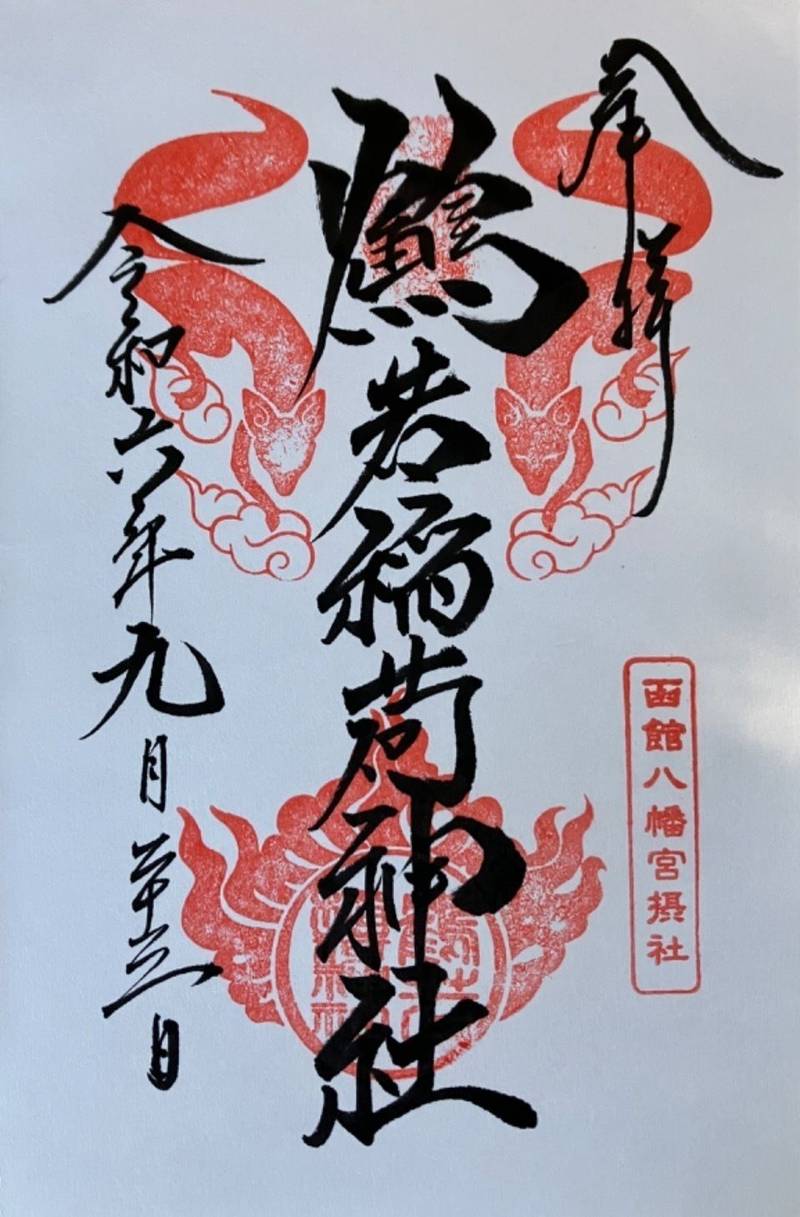 奉拝
函館八幡宮摂社
鶴若稲荷神社
令和六年九月二十三日